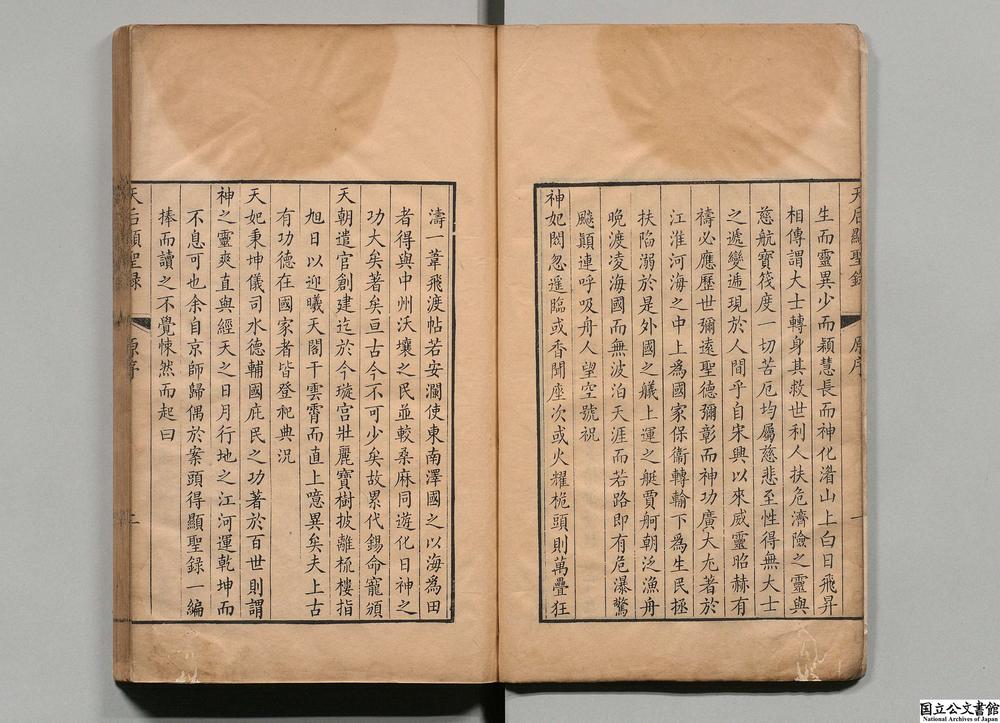 天后顯聖錄 原序 一
生而靈異少而穎慧長而神化湄山上白日飛昇
相傳謂大士轉身其救世利人扶危濟險之靈與
慈航寶筏度一切苦厄均屬慈悲至性得無大士
之遞變遞現於人間乎自宋興以來威靈昭赫有
禱必應歷世彌遠聖德彌彰而神功廣大尤著於
江淮河海之中上為國家保衞轉輸下為生民拯
扶陷溺於是外國之艤上運之艇賈舸朝泛漁舟
晚渡凌海國而無波泊天涯而若路即有危瀑驚
飈顛連呼吸舟人望空號祝
神妃閟忽遥臨或香聞座次或火耀桅頭則萬疊狂
濤一葦飛渡帖若安瀾使東南澤國之以海為田
者得與中州沃壤之民並較桑麻同遊化日神之
功大矣著矣亘古今不可少矣故累代錫命寵頒
天朝遣官創建迄於今璇宮壯麗寶樹披離梳樓指
旭日以迎曦天閣干雲霄而直上噫異矣夫上古
有功德在國家者皆登祀典況
天妃秉坤儀司水德輔國庇民之功著於百世則謂
神之靈爽直與經天之日月行地之江河運乾坤而
不息可也余自京師歸偶於案頭得顯聖録一編
捧而讀之不覺悚然而起曰
天后顯聖錄 原序 二
国立公文書館
National Archives of Japan